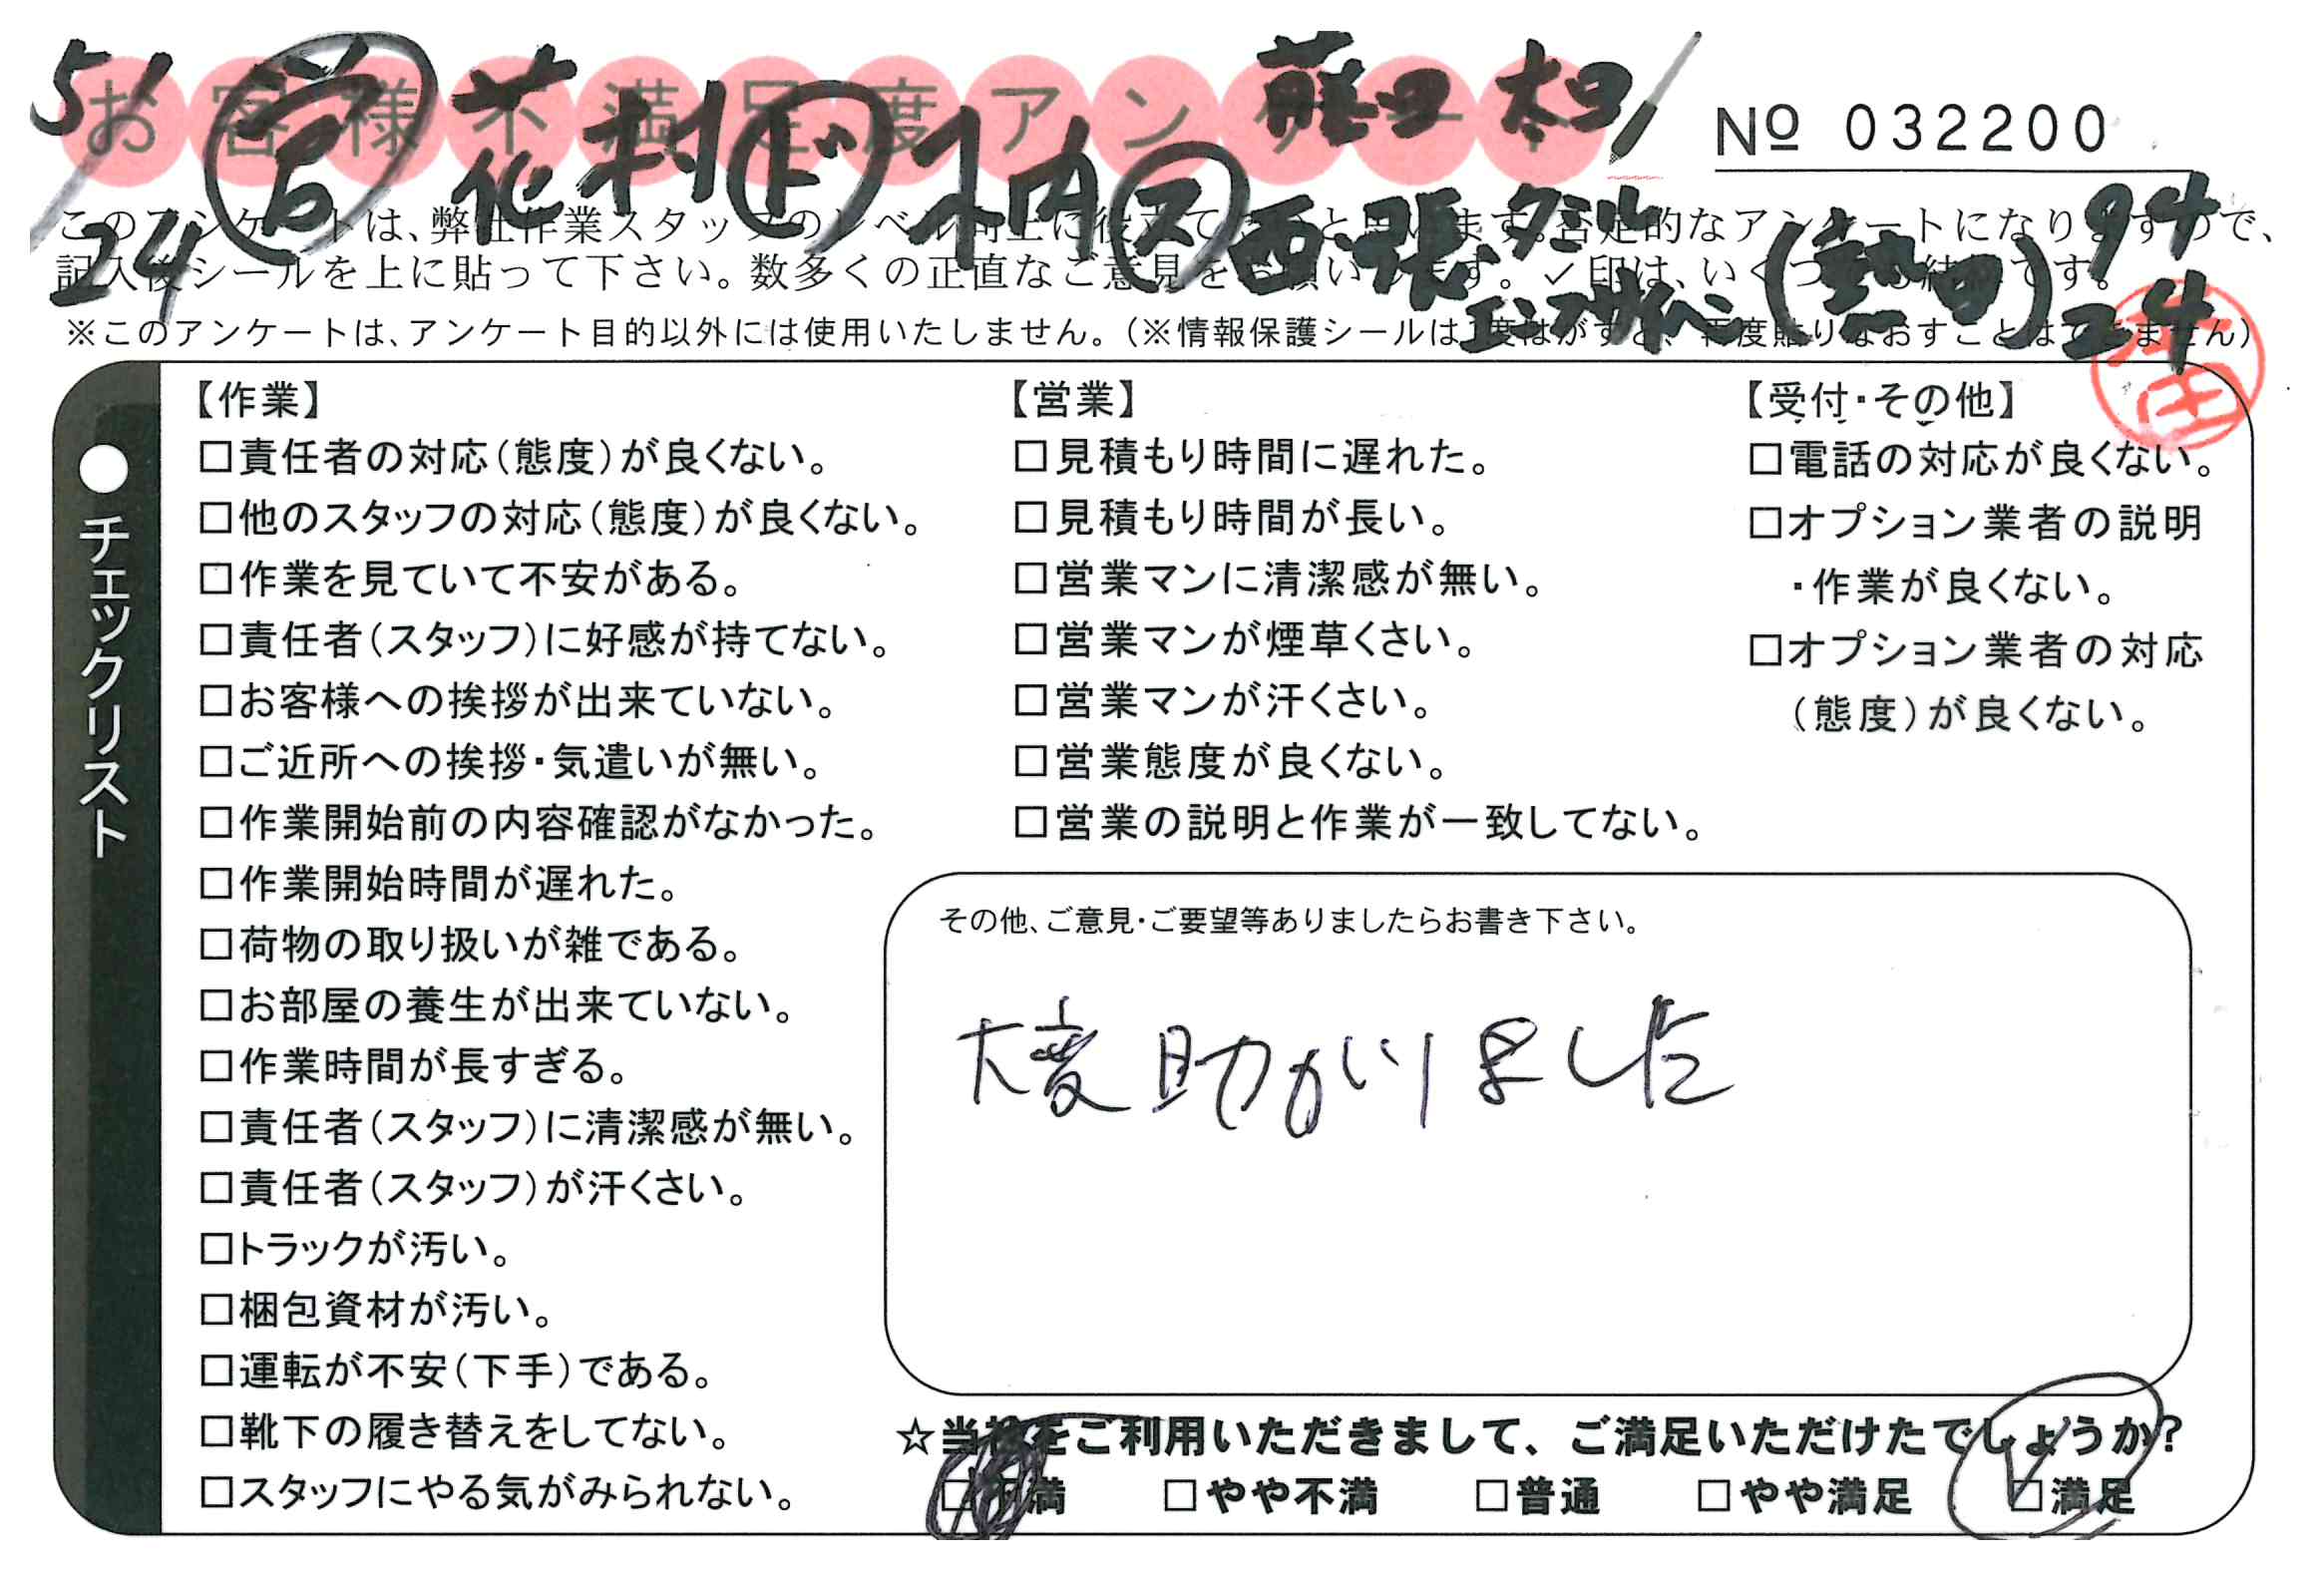 5/24 営 花利 ド 竹内 ス 西張 藤田 太田
お客様不満足度アンケート
タミル エンフサイハン (熱田) 94 24
№ 032200
このアンケートは、弊社作業スタッフのレベル向上に役立てたいと思います。否定的なアンケートになりますので、
記入後シールを上に貼って下さい。数多くの正直なご意見をお願いします。✓印は、いくつでも結構です。
※このアンケートは、アンケート目的以外には使用いたしません。(※情報保護シールは1度はがすと、再度貼りなおすことはできません)
●チェックリスト
【作業】
□責任者の対応(態度)が良くない。
□他のスタッフの対応(態度)が良くない。
□作業を見ていて不安がある。
□責任者(スタッフ)に好感が持てない。
□お客様への挨拶が出来ていない。
□ご近所への挨拶・気遣いが無い。
□作業開始前の内容確認がなかった。
□作業開始時間が遅れた。
□荷物の取り扱いが雑である。
□お部屋の養生が出来ていない。
□作業時間が長すぎる。
□責任者(スタッフ)に清潔感が無い。
□責任者(スタッフ)が汗くさい。
□トラックが汚い。
□梱包資材が汚い。
□運転が不安(下手)である。
□靴下の履き替えをしてない。
□スタッフにやる気がみられない。
【営業】
□見積もり時間に遅れた。
□見積もり時間が長い。
□営業マンに清潔感が無い。
□営業マンが煙草くさい。
□営業マンが汗くさい。
□営業態度が良くない。
□営業の説明と作業が一致してない。
【受付・その他】
□電話の対応が良くない。
□オプション業者の説明
・作業が良くない。
□オプション業者の対応
(態度)が良くない。
その他、ご意見・ご要望等ありましたらお書き下さい。
大変助かりました
☆当社をご利用いただきまして、ご満足いただけたでしょうか?
□不満 □やや不満 □普通 □やや満足 ☑満足